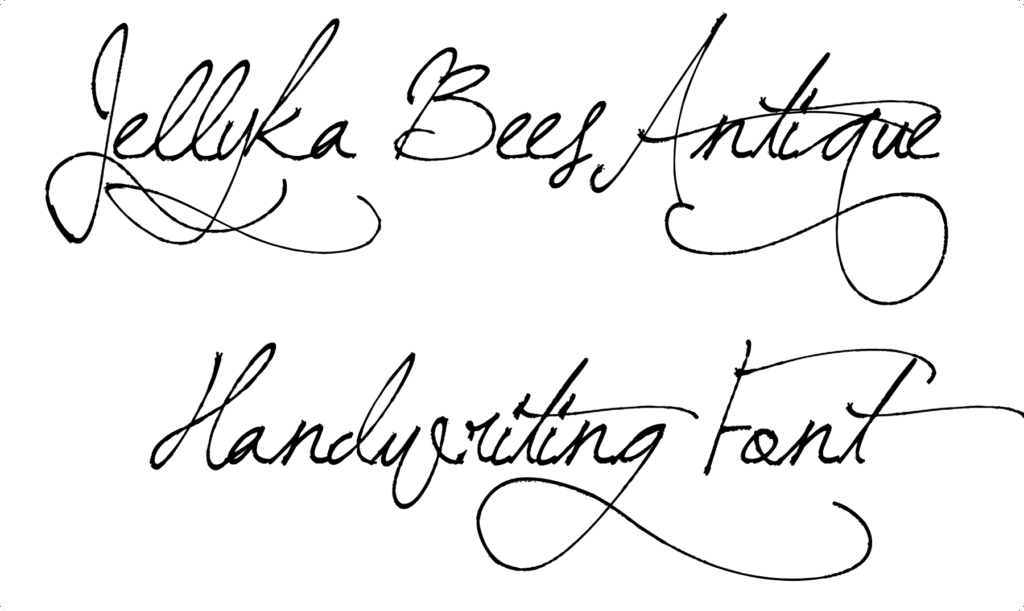 Jellyka Bees Antique
Handwriting Font